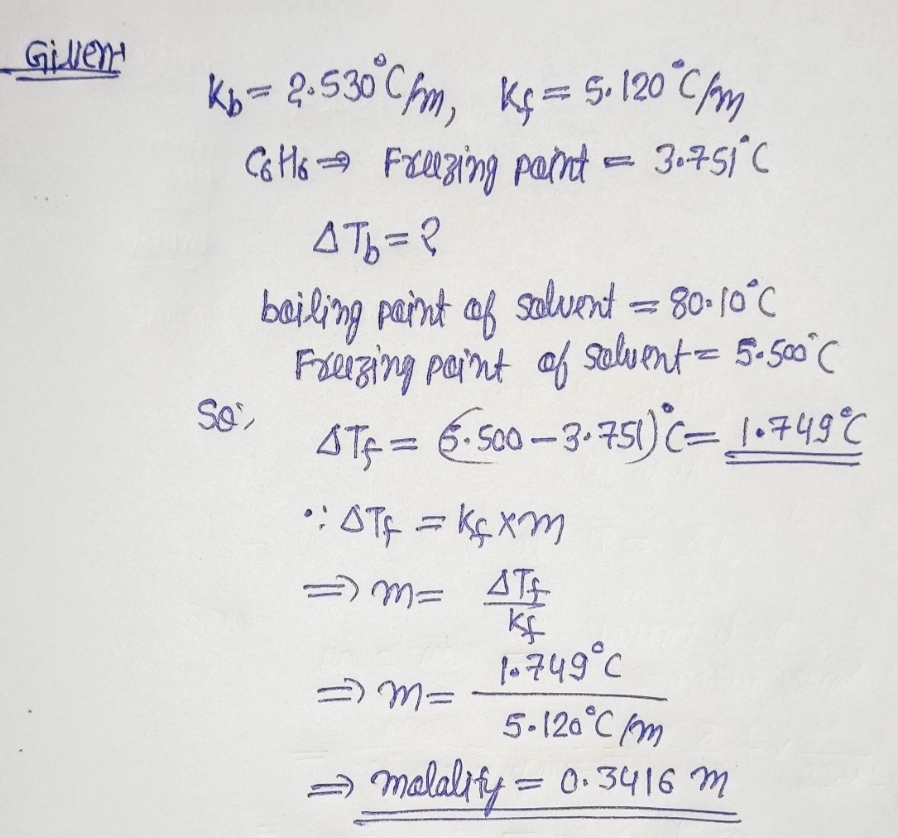 Given
Kb = 2.530°C/m, Kf = 5.120°C/m
C6H6 ⇒ Freezing point = 3.751°C
ΔTb = ?
boiling point of solvent = 80.10°C
Freezing point of solvent = 5.500°C
So,
ΔTf = (5.500 – 3.751)°C = 1.749°C
∵ ΔTf = Kf × m
⇒ m = ΔTf / Kf
⇒ m = 1.749°C / 5.120°C/m
⇒ molality = 0.3416 m